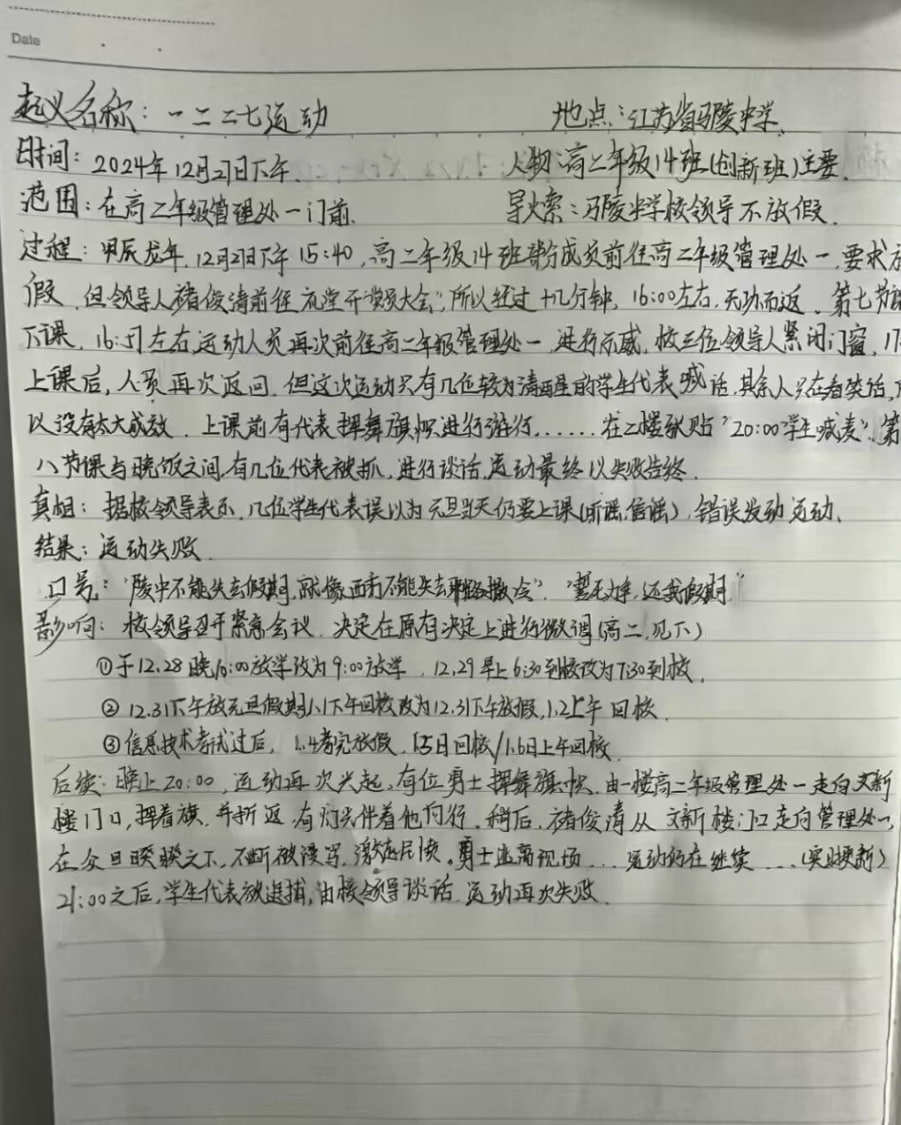 Date
起义名称：一二二七运动 地点：江苏省马陵中学
时间：2024年12月27日下午. 人物：高二年级14班(创新班)主要.
范围：在高二年级管理处一门前. 导火索：马陵中学校领导不放假.
过程：甲辰龙年,12月27日下午15:40,高二年级14班部分成员前往高二年级管理处一,要求
假,但领导人褚俊涛前往礼堂开"党员大会",所以经过十几分钟,16:00左右,无功而返。第七节课
下课,16:51左右,运动人员再次前往高二年级管理处一,进行示威,校三位领导人紧闭门窗,
上课后,人员再次返回,但这次运动只有几位较为清醒的学生代表喊话,其余人只在看笑话,
以没有太大成效.上课前有代表挥舞旗帜进行游行......在二楼张贴"20:00学生喊麦".第
八节课与晚饭之间,有几位代表被抓,进行谈话,运动最终以失败告终.
真相：据校领导表示,几位学生代表误以为元旦当天仍要上课(听谣信谣),错误发动运动、
结果：运动失败.
口号："陵中不能失去假期,就像西方不能失去耶路撒冷""誓死力争,还我假期."
影响：校领导召开紧急会议,决定在原有决定上进行微调(高二,见下)
①于12.28晚10:00放学改为9:00放学,12.29早上6:30到校改为7:30到校.
②12.31下午放元旦假期1.1下午回校改为12.31下午放假,1.2上午回校.
③信息技术考试过后,1.4考完放假,1.5日回校/1.6日上午回校.
后续：晚上20:00,运动再次兴起,有位勇士挥舞旗帜,由一楼高二年级管理处一走向文新
楼门口,挥着旗,并折返,有灯光伴着他同行.稍后,褚俊涛从文新楼门口走向管理处一,
在众目睽睽之下,不断被谩骂,激起民愤.勇士逃离现场...运动仍在继续....(实时更新)
21:00之后,学生代表被逮捕,由校领导谈话.运动再次失败.